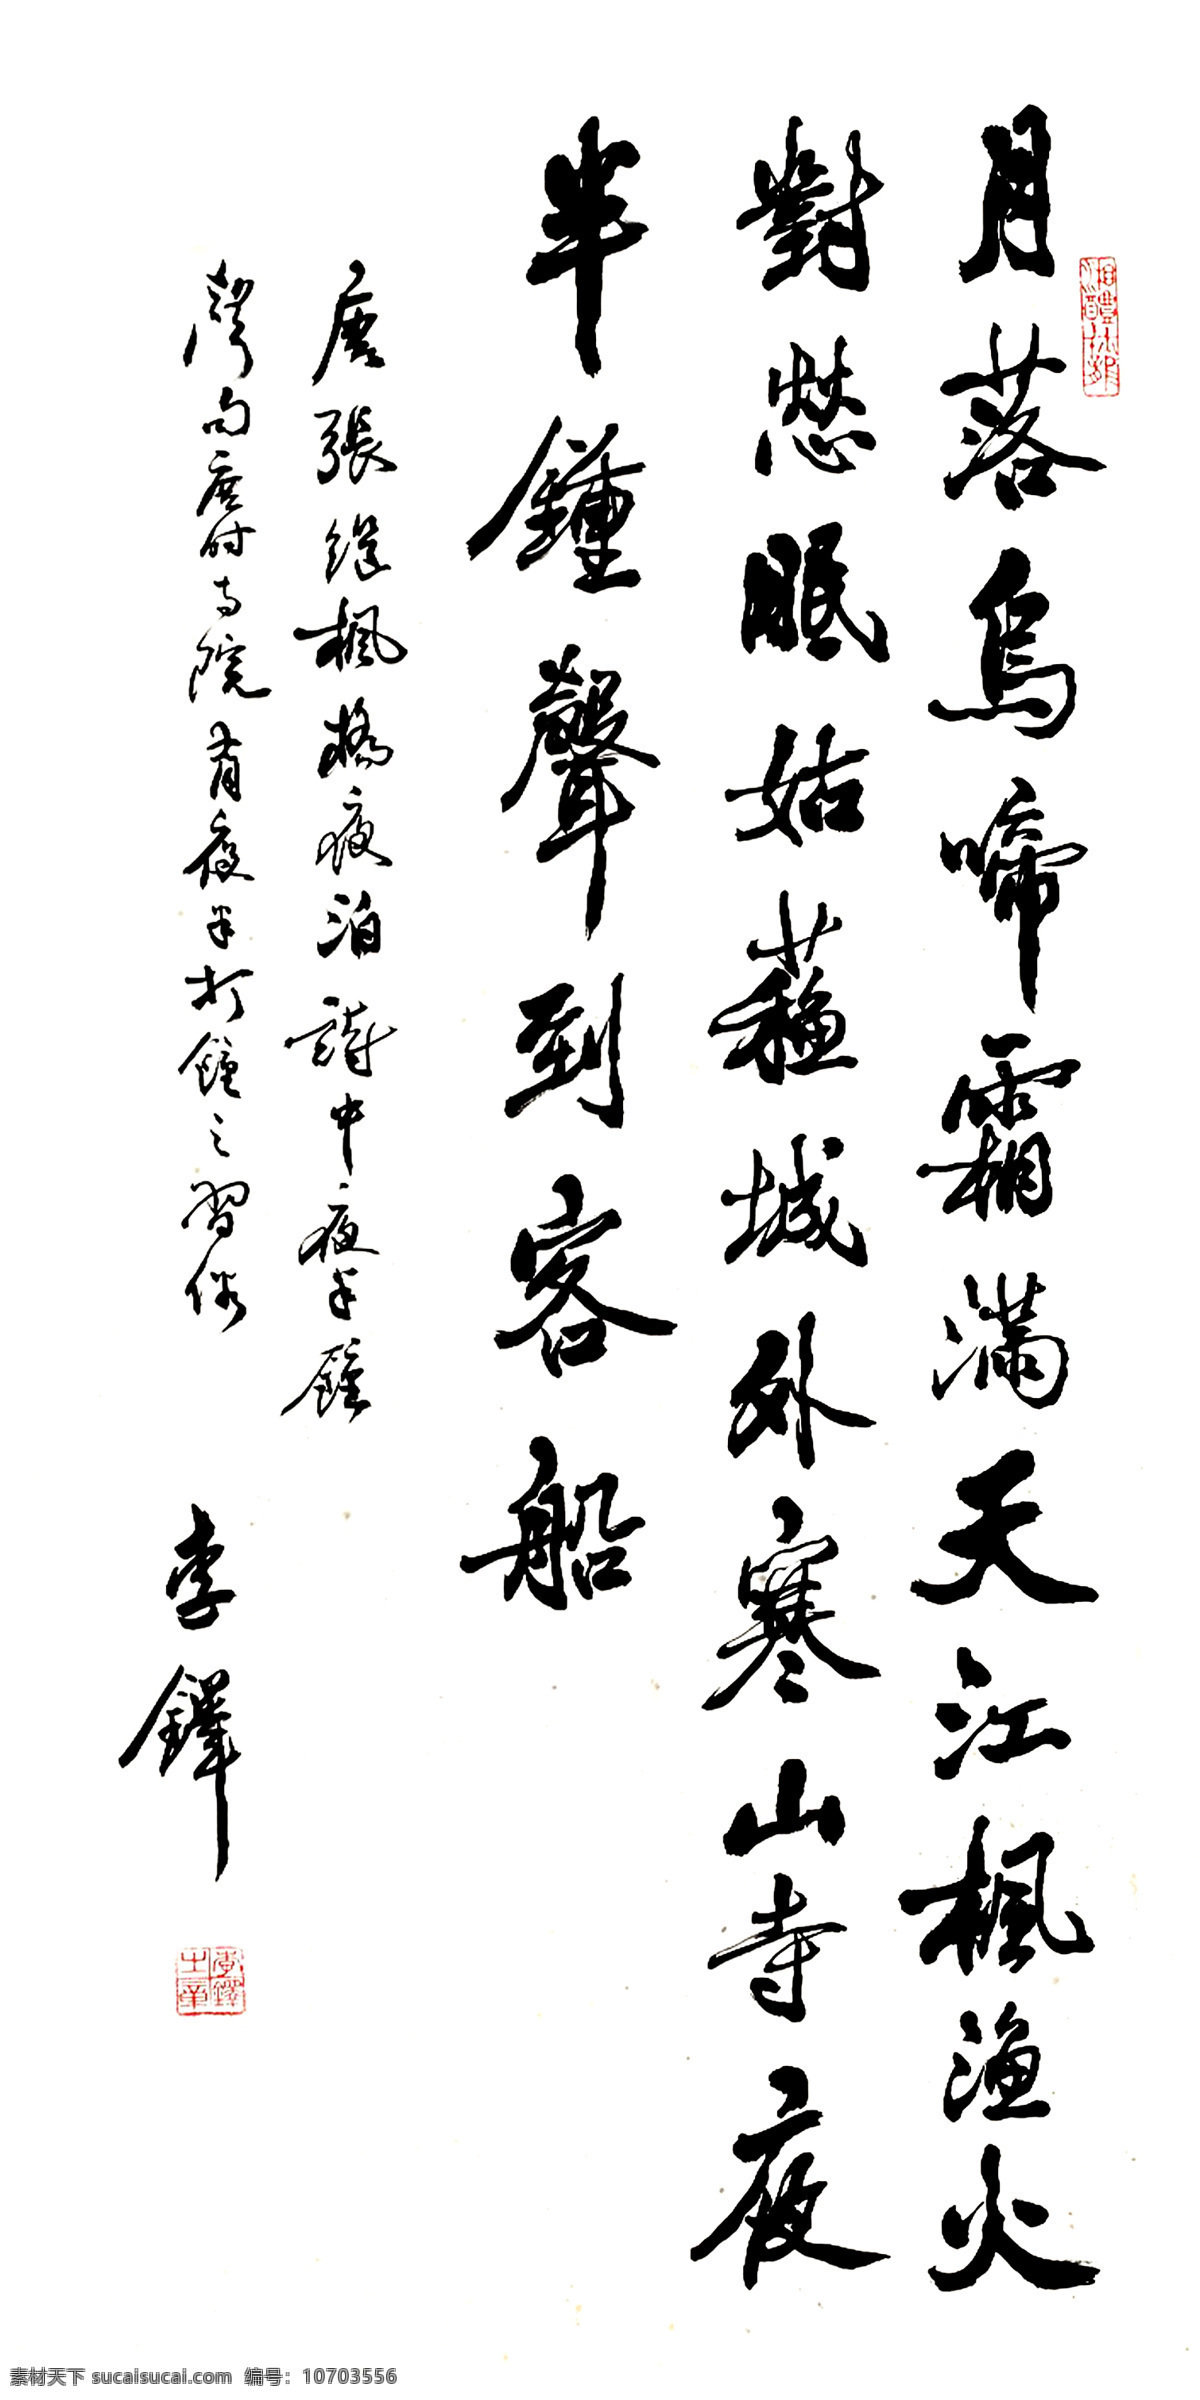 月落烏啼霜滿天江楓漁火
對愁眠姑蘇城外寒山寺夜
半鐘聲到客船
唐張継楓橋夜泊詩中夜半鐘
聲句唐时寺院有夜半打鐘之習俗
李鐸
李鐸之章
素材天下 sucaisucai.com 编号：10703556